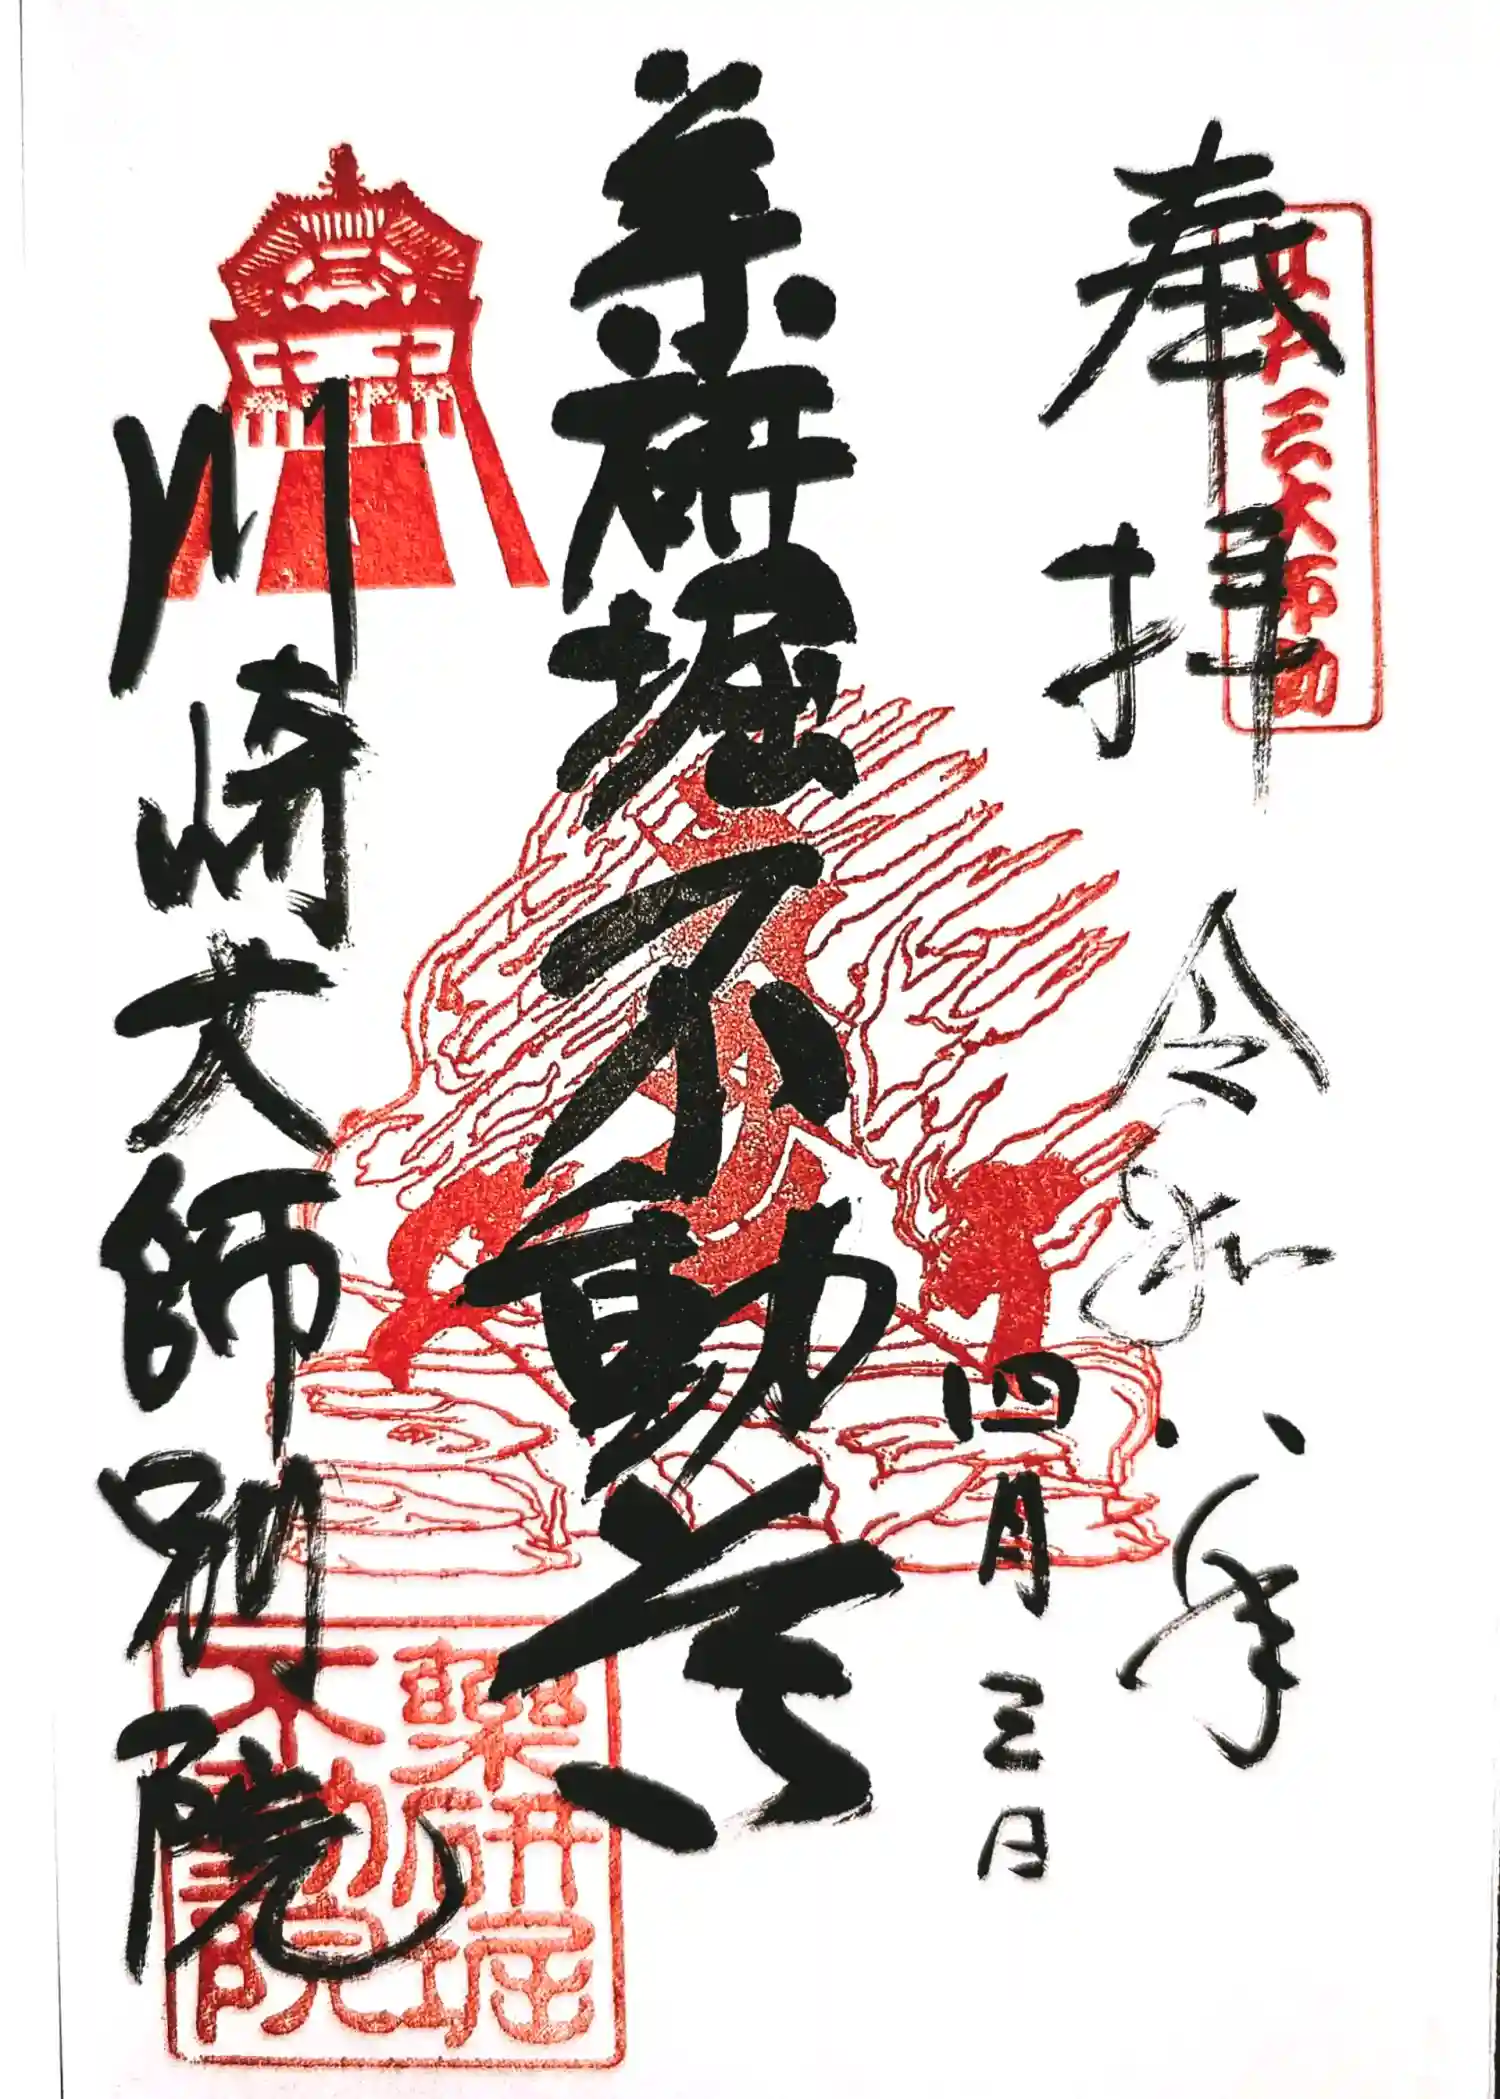 奉拝
江戸三大師
令和八年
四月三日
薬研堀不動尊
川崎大師別院
薬研堀
不動院